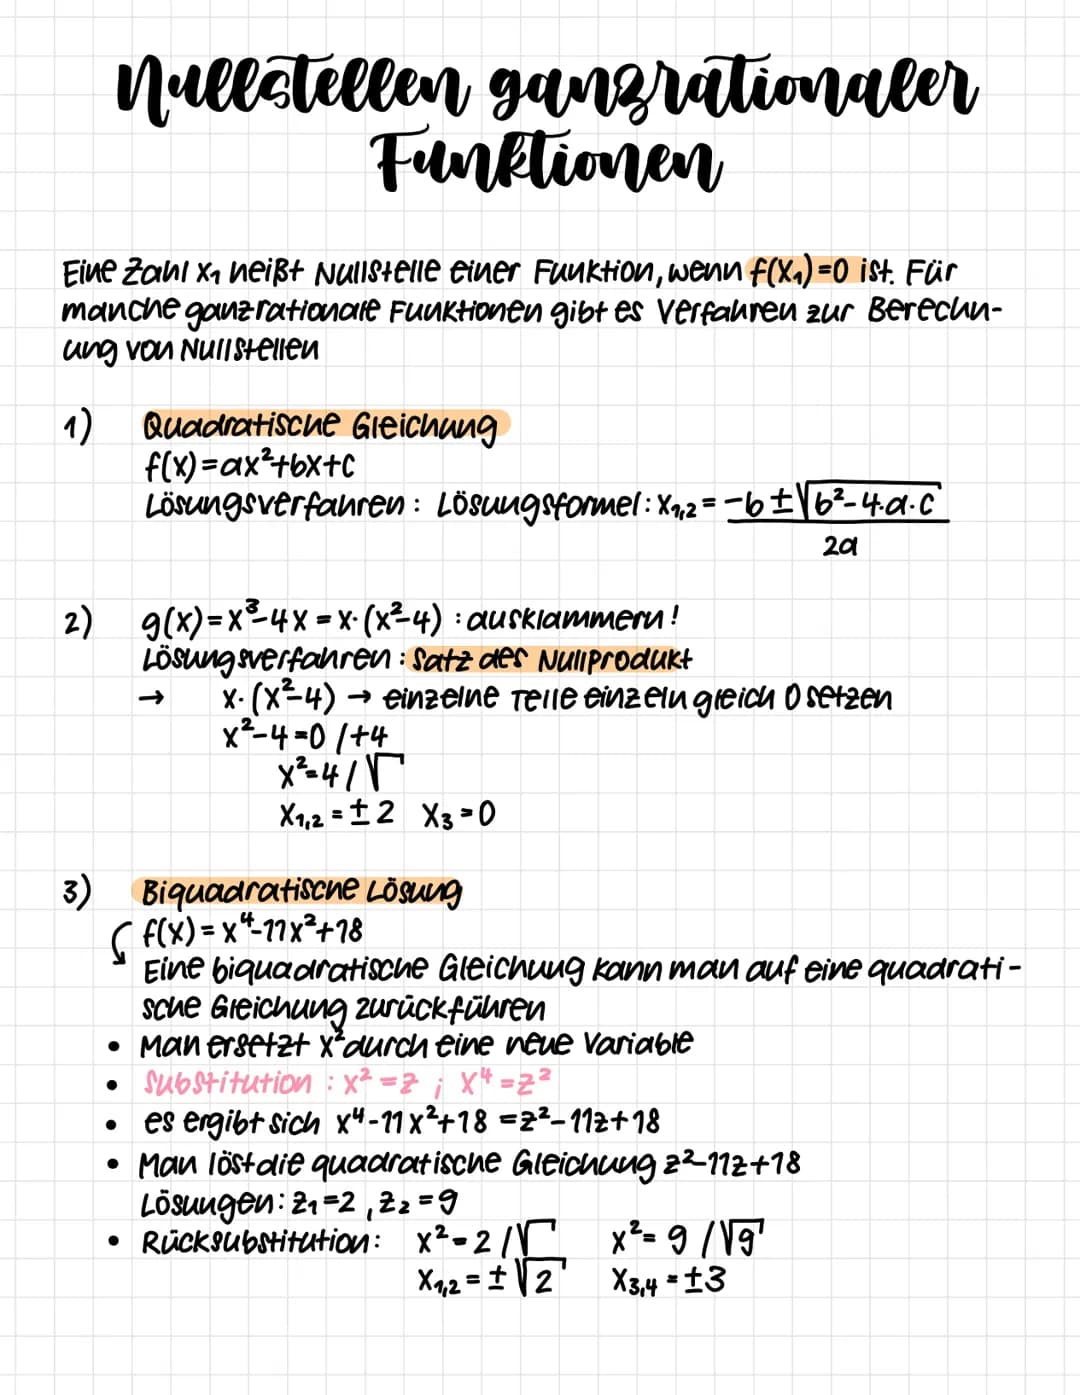 Nullstellen ganzrationaler
Funktionen
Eine Zahl x₁ heißt Nullstelle einer Funktion, wenn f(x₁)=0 ist. Für
manche ganzrationale Funktionen gibt es Verfahren zur Berechn-
ung von Nullstellen
1) Quadratische Gleichung
f(x)=ax²+bx+c
Lösungsverfahren: Lösungsformel: x₁,₂ = -b±√b²-4·a·c
2a
2) g(x)=x³-4x = x·(x²-4) : ausklammern!
Lösungsverfahren: Satz des Nullprodukt
→ x·(x²-4) → einzelne Teile einzeln gleich 0 setzen
x²-4=0 /+4
x²=4 /√
x₁,₂ = ±2 x₃=0
3) Biquadratische Lösung
f(x)= x⁴-11x²+18
Eine biquadratische Gleichung kann man auf eine quadrati-
sche Gleichung zurückführen
• Man ersetzt x² durch eine neue Variable
• Substitution: x²=z ; x⁴=z²
• es ergibt sich x⁴-11x²+18 =z²-11z+18
• Man löst die quadratische Gleichung z²-11z+18
Lösungen: z₁=2, z₂=9
• Rücksubstitution: x²=2 /√ x²= 9 /√9
x₁,₂ = ±√2 x₃,₄ = ±3